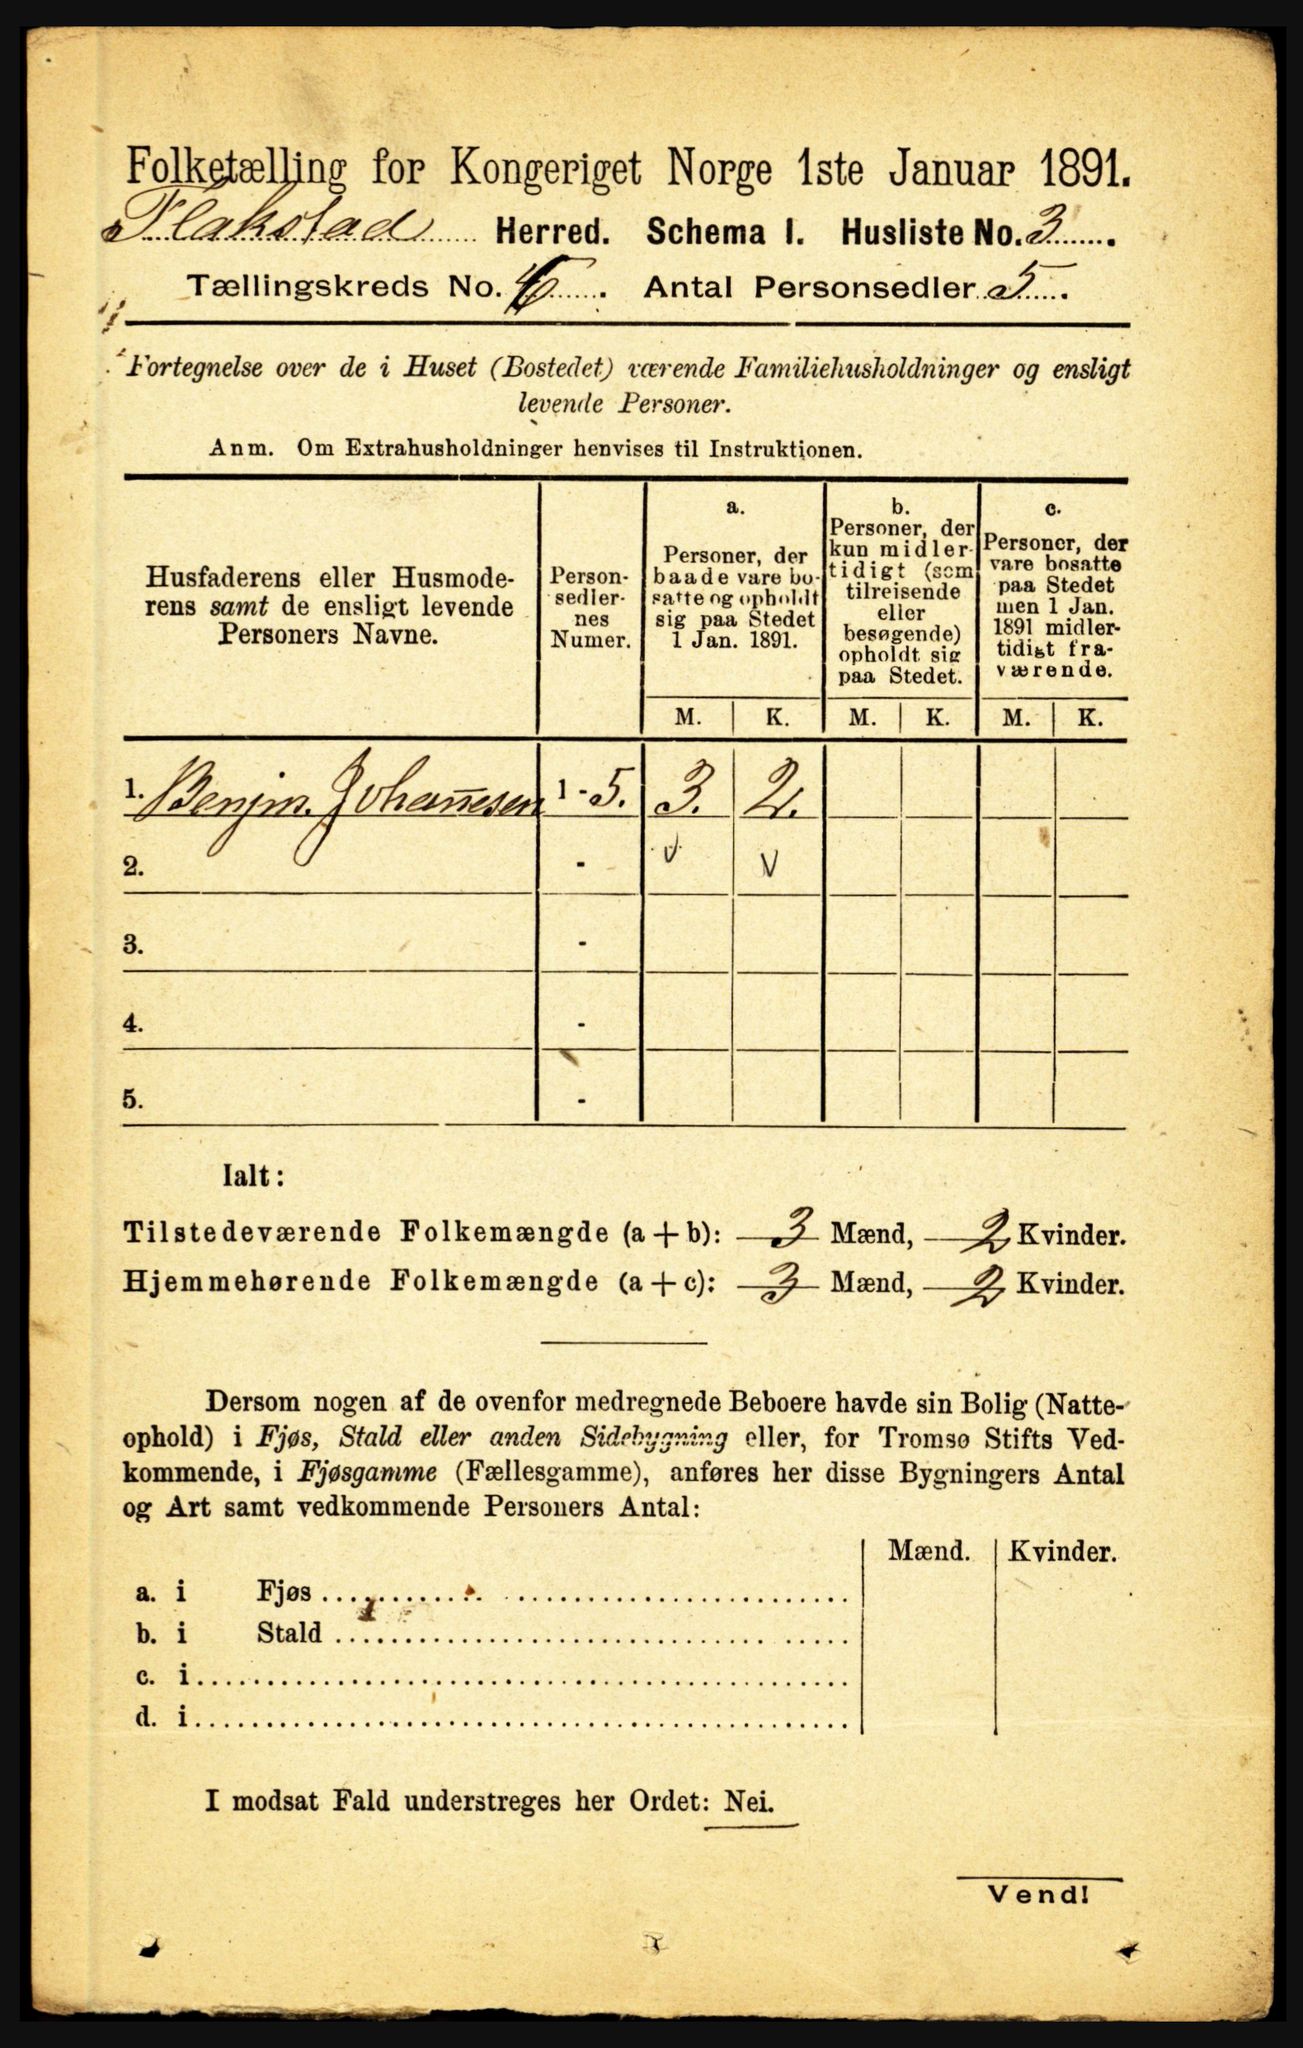 Folketælling for Kongeriget Norge 1ste Januar 1891.
Flakstad Herred. Schema I. Husliste No. 3.
Tællingskreds No. . Antal Personsedler 5.
Fortegnelse over de i Huset (Bostedet) værende Familiehusholdninger og ensligt
levende Personer.
Anm. Om Extrahusholdninger henvises til Instruktionen.
Husfaderens eller Husmode-
rens samt de ensligt levende
Personers Navne.
Person-
sedler-
nes
Numer.
a.
Personer, der
baade vare bo-
satte og opholdt
sig paa Stedet
1 Jan. 1891.
b.
Personer, der
kun midler-
tidigt (som
tilreisende
eller
besøgende)
opholdt sig
paa Stedet.
c.
Personer, der
vare bosatte
paa Stedet
men 1 Jan.
1891 midler-
tidigt fra-
værende.
M. K. M. K. M. K.
1. Benjm. Johannesen 1 - 5. 3. 2.
2. - v v
3. -
4. -
5. -
Ialt:
Tilstedeværende Folkemængde (a + b): 3 Mænd, 2 Kvinder.
Hjemmehørende Folkemængde (a + c): 3 Mænd, 2 Kvinder.
Dersom nogen af de ovenfor medregnede Beboere havde sin Bolig (Natte-
ophold) i Fjøs, Stald eller anden Sidebygning eller, for Tromsø Stifts Ved-
kommende, i Fjøsgamme (Fællesgamme), anføres her disse Bygningers Antal
og Art samt vedkommende Personers Antal:
Mænd. Kvinder.
a. i Fjøs
b. i Stald
c. i
d. i
I modsat Fald understreges her Ordet: Nei.
Vend!